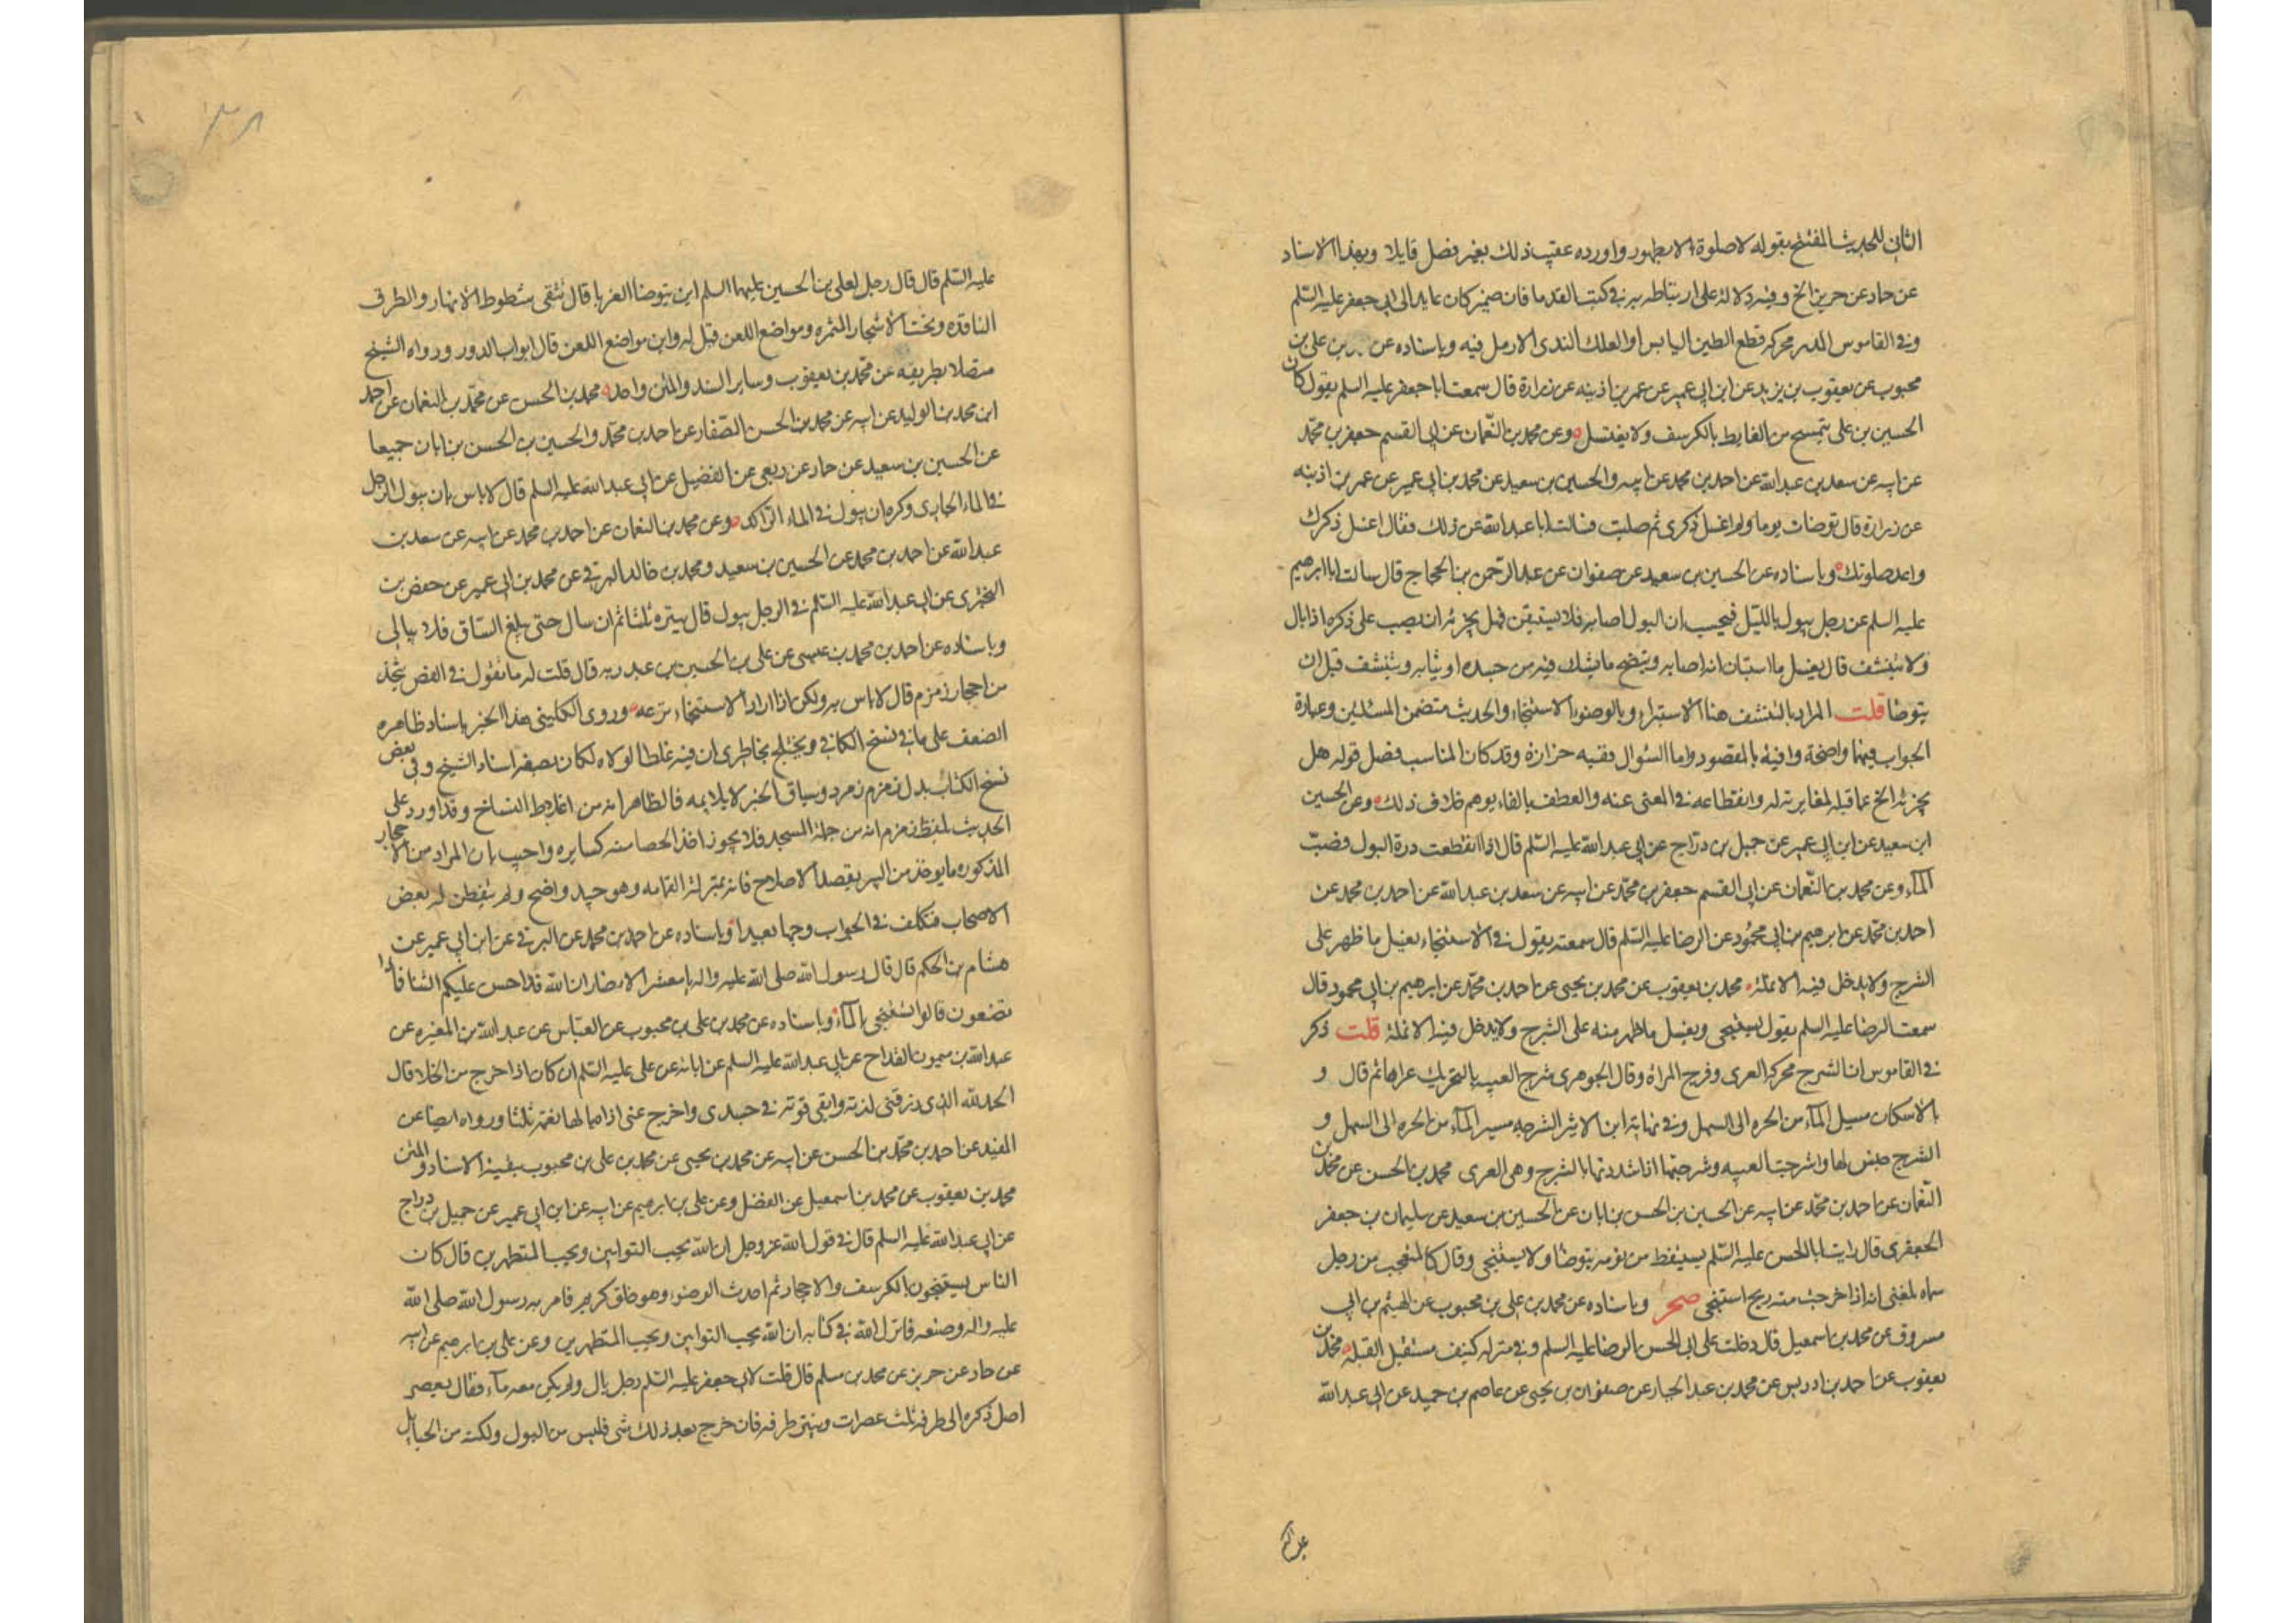 الثاني للحديث المفتتح بقوله لا صلوة الا بطهور واورده عقيب ذلك بغير فصل قايلا وبهذا الاسناد
عن حماد عن حريز الخ وفيه دلالة على ارتباطه به في كتب القدما فان ضميره كان عايدا الى ابي جعفر عليه السلم
وفي القاموس المدر محركه قطع الطين اليابس او العلك الندى لا رمل فيه وباسناده عن بن علي بن
محبوب عن يعقوب بن يزيد عن ابن ابي عمير عن عمر بن اذينه عن زرارة قال سمعت ابا جعفر عليه السلم يقول كان
الحسين بن علي يتمسح من الغايط بالكرسف ولا يغتسل وعن محمد بن النعمان عن ابي القسم جعفر بن محمد
عن ابيه عن سعد بن عبد الله عن احمد بن محمد عن ابيه والحسين بن سعيد عن محمد بن ابي عمير عن عمر بن اذينه
عن زرارة قال توضات يوما ولم اغسل ذكري ثم صليت فسالت ابا عبد الله عن ذلك فقال اغسل ذكرك
واعد صلوتك وباسناده عن الحسين بن سعيد عن صفوان عن عبد الرحمن بن الحجاج قال سالت ابا ابرهيم
عليه السلم عن رجل يبول بالليل فيحسب ان البول اصابه فلا يستيقن فهل يجزئه ان يصب على ذكره اذا بال
ولا يتنشف قال يغسل ما استبان انه اصابه وينضح ما يشك فيه من جسده او ثيابه ويتنشف قبل ان
يتوضا قلت المراد بالتنشف هنا الاستبراء وبالوضوء الاستنجاء والحديث متضمن المسئلتين وعبارة
الجواب فيهما واضحة وافية بالمقصود واما السؤال ففيه حزازة وقد كان المناسب فصل قوله هل
يجزئه الخ عما قبله لمغايرته له وانقطاعه في المعنى عنه والعطف بالفاء يوهم خلاف ذلك وعن الحسين
ابن سعيد عن ابن ابي عمير عن جميل بن دراج عن ابي عبد الله عليه السلم قال اذا انقطعت درة البول فصب
الماء وعن محمد بن النعمان عن ابي القسم جعفر بن محمد عن ابيه عن سعد بن عبد الله عن احمد بن محمد عن
احمد بن محمد عن ابرهيم بن ابي محمود عن الرضا عليه السلم قال سمعته يقول في الاستنجاء يغسل ما ظهر على
الشرج ولا يدخل فيه الانملة محمد بن يعقوب عن محمد بن يحيى عن احمد بن محمد عن ابرهيم بن ابي محمود قال
سمعت الرضا عليه السلم يقول يستنجي ويغسل ما ظهر منه على الشرج ولا يدخل فيه الانملة قلت ذكر
في القاموس ان الشرج محركه العرى وفرج المراة وقال الجوهري شرج العيبه بالتحريك عراها ثم قال و
بالاسكان مسيل الماء من الحره الى السهل وفي نهاية ابن الاثير الشرجه مسير الماء من الحره الى السهل و
الشرج جنس لها واشرجت العيبه وشرجتها اذا شددتها بالشرج وهي العرى محمد بن الحسن عن محمد بن
النعمان عن احمد بن محمد عن ابيه عن الحسين بن الحسن بن ابان عن الحسين بن سعيد عن سليمان بن جعفر
الجعفري قال رايت ابا الحسن عليه السلم يستيقظ من نومه يتوضا ولا يستنجي وقال كالمتعجب من رجل
سماه بلغني انه اذا خرجت منه ريح استنجى صحر وباسناده عن محمد بن علي بن محبوب عن الهيثم بن ابي
مسروق عن محمد بن اسمعيل قال دخلت على ابي الحسن الرضا عليه السلم وفي منزله كنيف مستقبل القبلة محمد بن
يعقوب عن احمد بن ادريس عن محمد بن عبد الجبار عن صفوان بن يحيى عن عاصم بن حميد عن ابي عبد الله
عليه السلم قال قال رجل لعلي بن الحسين عليهما السلم اين يتوضا الغربا قال تتقى شطوط الانهار والطرق
النافذه وتحت الاشجار المثمره ومواضع اللعن قيل له واين مواضع اللعن قال ابواب الدور ورواه الشيخ
متصلا بطريقه عن محمد بن يعقوب وساير السند والمتن واحد محمد بن الحسن عن محمد بن النعمان عن احمد
ابن محمد بن الوليد عن ابيه عن محمد بن الحسن الصفار عن احمد بن محمد والحسين بن الحسن بن ابان جميعا
عن الحسين بن سعيد عن حماد عن ربعي عن الفضيل عن ابي عبد الله عليه السلم قال لا باس بان يبول الرجل
في الماء الجاري وكره ان يبول في الماء الراكد وعن محمد بن النعمان عن احمد بن محمد عن ابيه عن سعد بن
عبد الله عن احمد بن محمد عن الحسين بن سعيد ومحمد بن خالد البرقي عن محمد بن ابي عمير عن حفص بن
البختري عن ابي عبد الله عليه السلم في الرجل يبول قال ينتره ثلثا ثم ان سال حتى يبلغ الساق فلا يبالي
وباسناده عن احمد بن محمد بن عيسى عن علي بن الحسين بن عبد ربه قال قلت له ما تقول في الفص يتخذ
من احجار زمزم قال لا باس به ولكن اذا اراد الاستنجاء نزعه وروى الكليني هذا الخبر باسناد ظاهره
الضعف على ما في نسخ الكافي ويختلج بخاطري ان فيه غلطا لولاه لكان بصفه اسناد الشيخ وفي بعض
نسخ الكتاب بدل زمزم زمرد وسياق الخبر لا يلايمه فالظاهر انه من اغاليط النساخ وقد اورد على
الحديث بلفظ زمزم انه من جملة المسجد فلا يجوز اخذ الحصا منه كسايره واجيب بان المراد من الاحجار
المذكوره ما يوخذ من البير بقصد الاصلاح فانه بمنزلة القمامه وهو جيد واضح ولم يتفطن له بعض
الاصحاب فتكلف في الجواب وجها بعيدا وباسناده عن احمد بن محمد عن البرقي عن ابن ابي عمير عن
هشام بن الحكم قال قال رسول الله صلى الله عليه واله يا معشر الانصار ان الله قد احسن عليكم الثنا فماذا
تصنعون قالوا نستنجي بالماء وباسناده عن محمد بن علي بن محبوب عن العباس عن عبد الله بن المغيره عن
عبد الله بن ميمون القداح عن ابي عبد الله عليه السلم عن ابائه عن علي عليه السلم انه كان اذا خرج من الخلا قال
الحمد لله الذي رزقني لذته وابقى قوته في جسدي واخرج عني اذاه يا لها نعمة ثلثا ورواه ايضا عن
المفيد عن احمد بن محمد بن الحسن عن ابيه عن محمد بن يحيى عن محمد بن علي بن محبوب ببقية الاسناد والمتن
محمد بن يعقوب عن محمد بن اسمعيل عن الفضل وعن علي بن ابرهيم عن ابيه عن ابن ابي عمير عن جميل بن دراج
عن ابي عبد الله عليه السلم قال في قول الله عز وجل ان الله يحب التوابين ويحب المتطهرين قال كان
الناس يستنجون بالكرسف والاحجار ثم احدث الوضوء وهو خلق كريم فامر به رسول الله صلى الله
عليه واله وصنعه فانزل الله في كتابه ان الله يحب التوابين ويحب المتطهرين وعن علي بن ابرهيم عن ابيه
عن حماد عن حريز عن محمد بن مسلم قال قلت لابي جعفر عليه السلم رجل بال ولم يكن معه ماء فقال يعصر
اصل ذكره الى طرفه ثلث عصرات وينتر طرفه فان خرج بعد ذلك شي فليس من البول ولكنه من الحبايل